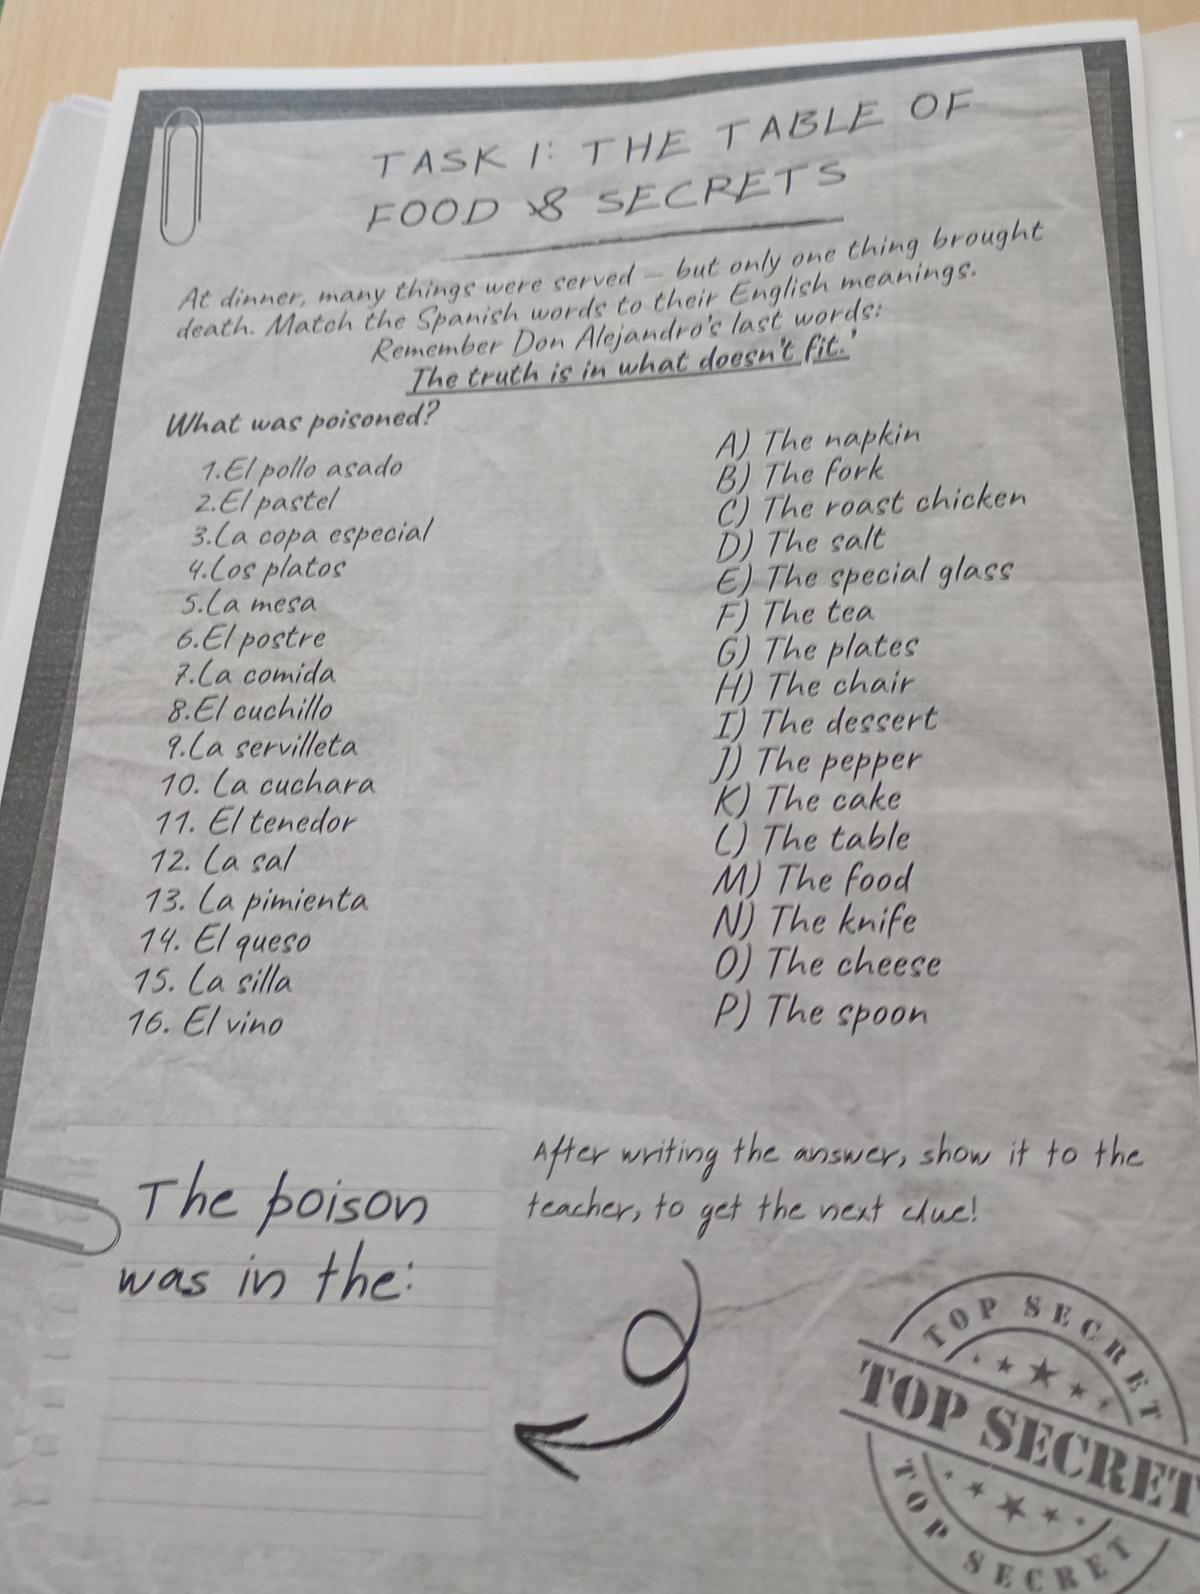 TASK 1: THE TABLE OF
FOOD & SECRETS
At dinner, many things were served – but only one thing brought
death. Match the Spanish words to their English meanings.
Remember Don Alejandro's last words:
The truth is in what doesn't fit.'
What was poisoned?
1.El pollo asado
2.El pastel
3.La copa especial
4.Los platos
5.La mesa
6.El postre
7.La comida
8.El cuchillo
9.La servilleta
10. La cuchara
11. El tenedor
12. La sal
13. La pimienta
14. El queso
15. La silla
16. El vino
A) The napkin
B) The fork
C) The roast chicken
D) The salt
E) The special glass
F) The tea
G) The plates
H) The chair
I) The dessert
J) The pepper
K) The cake
L) The table
M) The food
N) The knife
O) The cheese
P) The spoon
The poison
was in the:
After writing the answer, show it to the
teacher, to get the next clue!
TOP SECRET
TOP SECRET
TOP SECRET